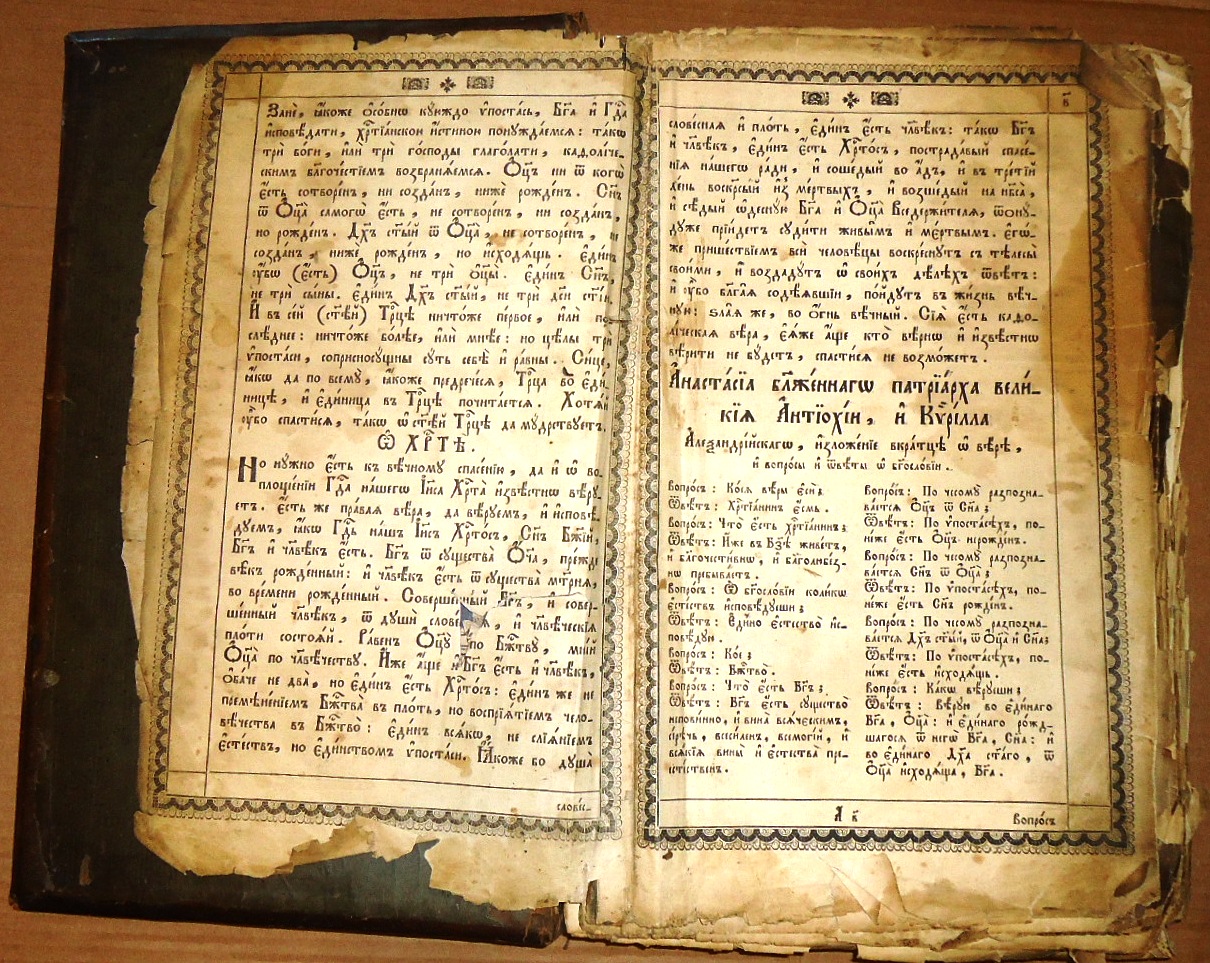 Занѐ, ꙗ҆́коже ѻ҆со́бнѡ ку́юждо ѵ҆поста́сь, Бг҃а и҆ Гдⷭ҇а
и҆сповѣ́дати, хрⷭ҇тїа́нскою и҆́стиною понужда́емсѧ: та́кѡ
трѝ бо́ги, и҆лѝ трѝ го́споды глаго́лати, каѳоли́че-
скимъ бл҃гоче́стїемъ возбранѧ́емсѧ. Ѻ҆ц҃ъ ни ѿ когѡ̀
є҆́сть сотворе́нъ, ни созда́нъ, нижѐ рожде́нъ. Сн҃ъ
ѿ Ѻ҆ц҃а̀ самогѡ̀ є҆́сть, не сотворе́нъ, ни созда́нъ,
но рожде́нъ. Дх҃ъ ст҃ы́й ѿ Ѻ҆ц҃а̀, не сотворе́нъ, ни
созда́нъ, нижѐ рожде́нъ, но и҆сходѧ́щь. Є҆ди́нъ
ᲂу҆̀бѡ (є҆́сть) Ѻ҆ц҃ъ, не трѝ ѻ҆ц҃ы̀. Є҆ди́нъ Сн҃ъ,
не трѝ сы́ны. Є҆ди́нъ Дх҃ъ ст҃ы́й, не трѝ дс҃и ст҃і́и.
И҆ въ се́й (ст҃ѣ́й) Трⷪ҇цѣ ничто́же пе́рвое, и҆лѝ по-
слѣ́днее: ничто́же бо́лѣе, и҆лѝ мнѣ́е: но цѣ́лы трѝ
ѵ҆поста́си, соприсносу́щны су́ть себѣ̀ и҆ ра́вны. Си́це,
ꙗ҆́кѡ да по всему̀, ꙗ҆́коже предрече́сѧ, Трⷪ҇ца во є҆ди-
ни́цѣ, и҆ є҆дини́ца въ Трⷪ҇цѣ почита́етсѧ. Хотѧ́й
ᲂу҆̀бо спасти́сѧ, та́кѡ ѡ҆ ст҃ѣ́й Трⷪ҇цѣ да му́дрствуетъ.
Ѽ ХРⷭ҇ТѢ̀.
Но ну́жно є҆́сть къ вѣ́чному спасе́нїю, да и҆ ѡ҆ во-
площе́нїи Гдⷭ҇а на́шегѡ І҆и҃са Хрⷭ҇та̀ и҆звѣ́стнѡ вѣ́ру-
етъ. є҆́сть же пра́ваѧ вѣ́ра, да вѣ́руемъ, и҆ и҆сповѣ́-
дуемъ, ꙗ҆́кѡ Гдⷭ҇ь на́шъ І҆и҃съ Хрⷭ҇то́съ, Сн҃ъ Бж҃їй,
Бг҃ъ и҆ чл҃вѣ́къ є҆́сть. Бг҃ъ ѿ существа̀ Ѻ҆́ч҃а, пре́жде
вѣ̑къ рожде́нный: и҆ чл҃вѣ́къ є҆́сть ѿ существа̀ мт҃рнѧ,
во вре́мени рожде́нный. Соверше́нный Бг҃ъ, и҆ совер-
ше́нный чл҃вѣ́къ, ѿ душѝ и҆ чл҃вѣ́ческїѧ
пло́ти состоѧ́й. Ра́венъ Ѻ҆ц҃у̀ по Бж҃тву̀, мні́й
Ѻ҆ц҃а̀ по чл҃вѣ́честву. И҆́же а҆́ще и҆ Бг҃ъ є҆́сть и҆ чл҃вѣ́къ,
ѻ҆ба́че не два̀, но є҆ди́нъ є҆́сть Хрⷭ҇то́съ: є҆ди́нъ же не
премѣне́нїемъ Бж҃тва̀ въ пло́ть, но воспрїѧ́тїемъ чело-
вѣ́чества въ Бж҃тво̀: є҆ди́нъ всѧ́кѡ, не слїѧ́нїемъ
є҆сте́ствъ, но є҆ди́нствомъ ѵ҆поста́си. Ꙗ҆́коже бо душа̀
слове́с-
в҃
слове́снаѧ и҆ пло́ть, є҆ди́нъ є҆́сть чл҃вѣ́къ: та́кѡ Бг҃ъ
и҆ чл҃вѣ́къ, є҆ди́нъ є҆́сть Хрⷭ҇то́съ, пострада́вый спасе́-
нїѧ на́шегѡ ра́ди, и҆ соше́дый во а҆́дъ, и҆ въ тре́тїй
де́нь воскрⷭ҇ы́й и҆з̾ ме́ртвыхъ, и҆ возше́дый на нб҃са̀,
и҆ сѣ́дый ѡ҆десну́ю Бг҃а и҆ Ѻ҆ц҃а̀ Вседержи́телѧ, ѿону́-
дуже прїи́детъ суди́ти живы́мъ и҆ ме́ртвымъ. є҆гѡ́-
же прише́ствїемъ всѝ человѣ́цы воскре́снутъ съ тѣлесы̀
свои́ми, и҆ воздадѧ́тъ ѡ҆ свои́хъ дѣ́лѣхъ ѿвѣ́тъ:
и҆ ᲂу҆́бо бл҃га̑ѧ содѣ́ѧвшїи, по́йдутъ въ жи́знь вѣ́ч-
ную: ѕла̑ѧ же, во ѻ҆́гнь вѣ́чный. Сїѧ̀ є҆́сть каѳо-
ли́ческаѧ вѣ́ра, є҆ѧ́же а҆́ще кто̀ вѣ́рнѡ и҆ и҆звѣ́стнѡ
вѣ́рити не бу́детъ, спасти́сѧ не возмо́жетъ.
А҆наста́сїа бл҃же́ннагѡ патрїа́рха вели́-
кїѧ А҆нтїохі́и, и҆ Кѷрі́лла
А҆леѯандрі́йскагѡ, и҆зложе́нїе вкра́тцѣ ѡ҆ вѣ́рѣ,
и҆ вопро́сы и҆ ѿвѣ́ты ѡ҆ бг҃осло́вїи.
Вопро́съ: Ко́еѧ вѣ́ры є҆сѝ;
Ѿвѣ́тъ: Хрⷭ҇тїа́нинъ є҆́смь.
Вопро́съ: Что̀ є҆́сть хрⷭ҇тїа́нинъ;
Ѿвѣ́тъ: И҆́же въ Бз҃ѣ живе́тъ,
и҆ благочести́внѡ, и҆ бл҃голюбе́з-
нѡ пребыва́етъ.
Вопро́съ: Ѽ бг҃осло́вїи коли́кѡ
є҆сте́ствъ и҆сповѣ́дуеши;
Ѿвѣ́тъ: Є҆ди́но є҆стество̀ и҆с-
повѣ́дую.
Вопро́съ: Ко́е;
Ѿвѣ́тъ: Бж҃тво̀.
Вопро́съ: Что̀ є҆́сть Бг҃ъ;
Ѿвѣ́тъ: Бг҃ъ є҆́сть существо̀
неповинно, и҆ вина̀ всѧ́ческимъ,
си́рѣчь, всеси́ленъ, всемогі́й, и҆
всѧ́кїѧ вины̀ и҆ є҆стества̀ пре-
сте́ственъ.
Вопро́съ: По чесому̀ разпозна-
ва́етсѧ Ѻ҆ц҃ъ ѿ Сн҃а;
Ѿвѣ́тъ: По ѵ҆поста́сѣхъ, по-
не́же є҆́сть Ѻ҆ц҃ъ нерожде́нъ.
Вопро́съ: По чесому̀ разпозна-
ва́етсѧ Сн҃ъ ѿ Ѻ҆ц҃а̀;
Ѿвѣ́тъ: По ѵ҆поста́сѣхъ, по-
не́же є҆́сть Сн҃ъ рожде́нъ.
Вопро́съ: По чесому̀ разпозна-
ва́етсѧ Дх҃ъ ст҃ы́й, ѿ Ѻ҆ц҃а̀ и҆ Сн҃а;
Ѿвѣ́тъ: По ѵ҆поста́сѣхъ, по-
не́же є҆́сть и҆сходѧ́щь.
Вопро́съ: Ка́кѡ вѣ́руеши;
Ѿвѣ́тъ: Вѣ́рую во є҆ди́наго
Бг҃а, Ѻ҆ц҃а̀: и҆ є҆ди́наго ро́жд-
шагосѧ ѿ негѡ̀ Бг҃а, Сн҃а: и҆
во є҆ди́наго Дх҃а ст҃а́го, ѿ
Ѻ҆ц҃а̀ и҆сходѧ́ща, Бг҃а.
А в҃
Вопро́съ